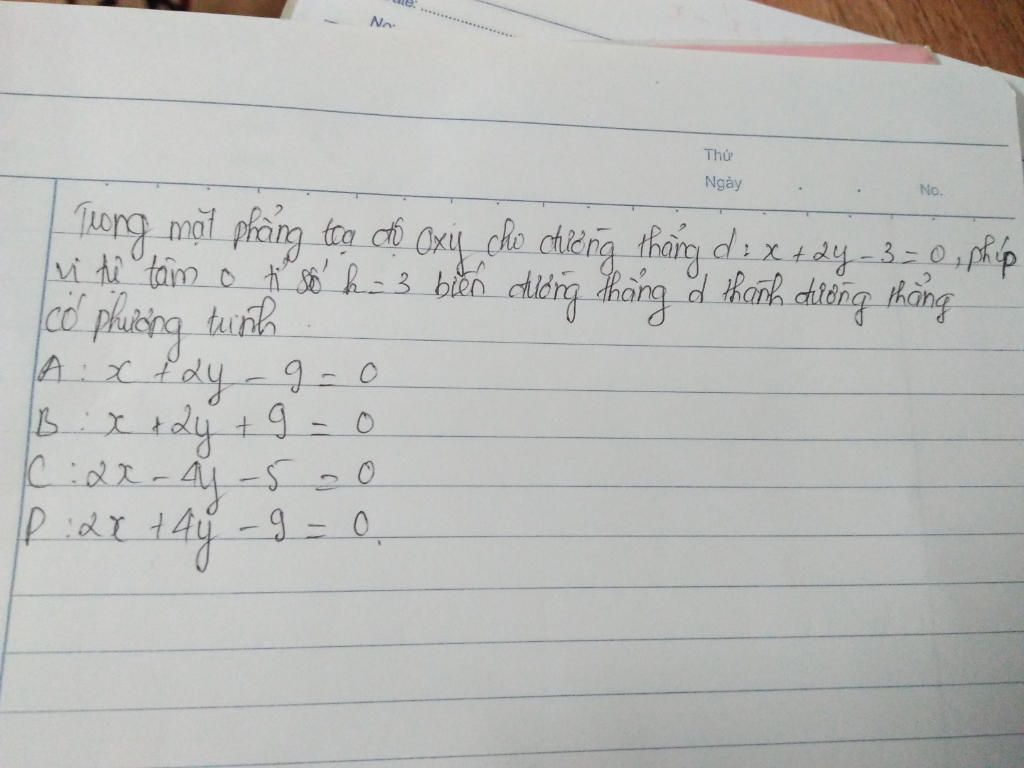 No:
Thứ
Ngày . . No.
Trong mặt phẳng tọa độ Oxy cho đường thẳng d: x + 2y - 3 = 0, phép
vị tự tâm O tỉ số k = 3 biến đường thẳng d thành đường thẳng
có phương trình
A: x + 2y - 9 = 0
B: x + 2y + 9 = 0
C: 2x - 4y - 5 = 0
D: 2x + 4y - 9 = 0.